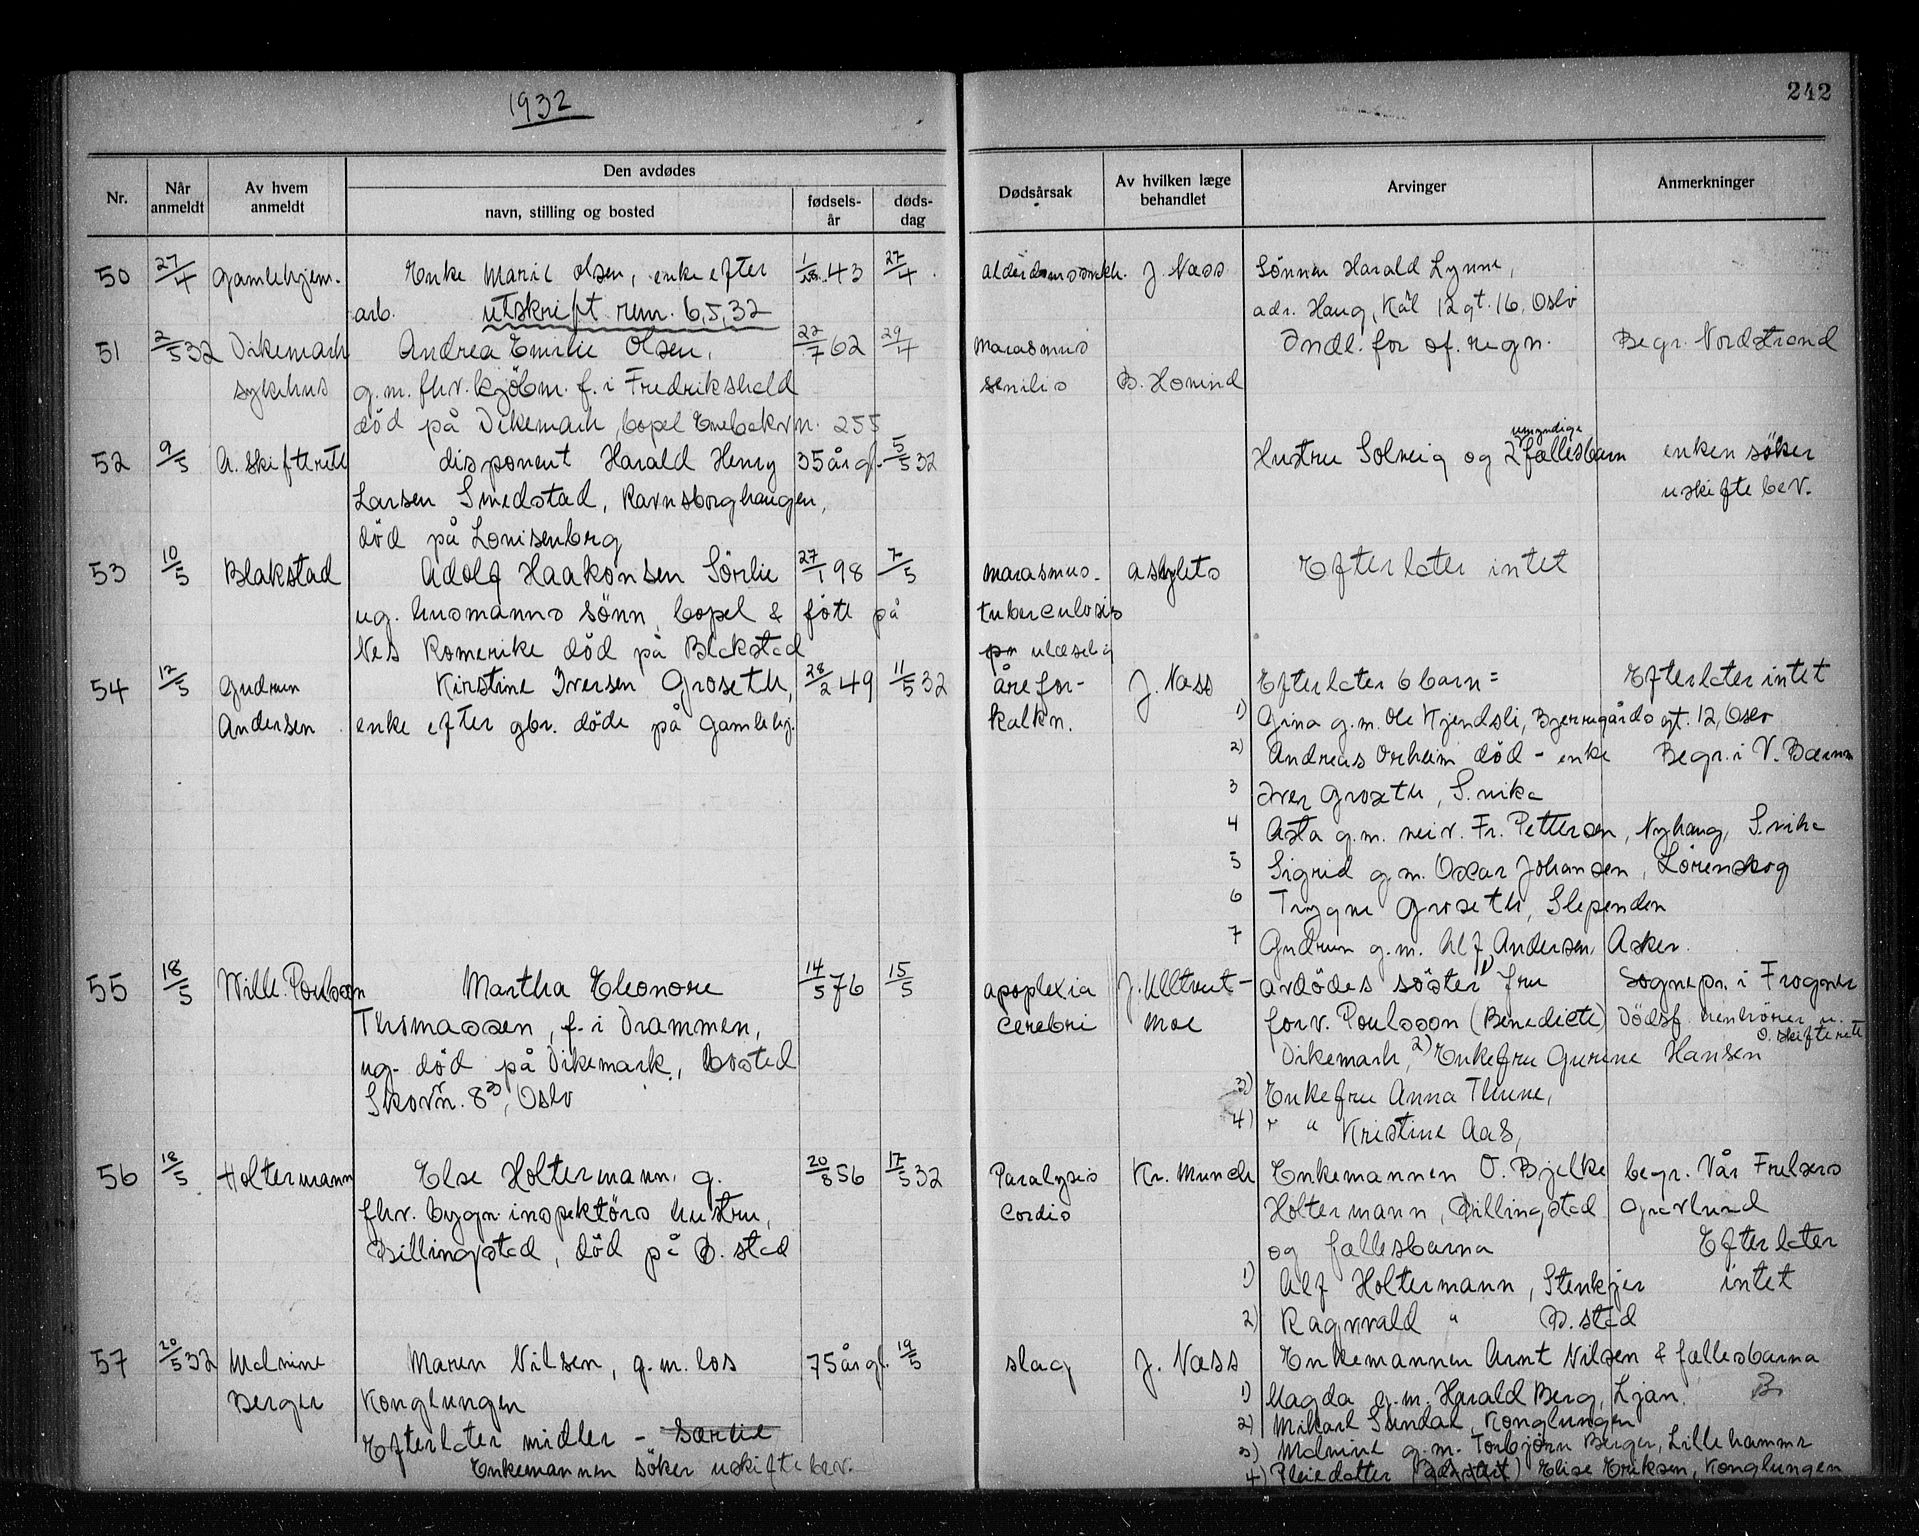 1932
242
Nr.
Når anmeldt
Av hvem anmeldt
Den avdødes
navn, stilling og bosted
fødsels-år
døds-dag
Dødsårsak
Av hvilken læge behandlet
Arvinger
Anmerkninger
50 27/4 Gamlehjem. Enke Marie Olsen, enke efter 43 27/4 J. Næss Sønnen Harald Lynne,
arb. utskrift rem. 6,5,32 adr. Haug, Kål 12 gt. 16, Oslo
51 2/5 32 Dikemark Andrea Emilie Olsen, 22/7 62 29/4 marasmus Indl. for of. regn. Begr. Nordstrand
sykehus g.m. fhv. kjøbm. f. i Fredrikshald senilis B. Hovind
død på Dikemark, bopel Enebakvn. 255
52 9/5 A. skifterett disponent Harald Henry 35 år gl. 5/5 32 Hustru Solveig og 2 umyndige fællesbarn enken søker
Larsen Smedstad, Ravnsborghaugen, uskiftebev.
død på Lovisenberg
53 10/5 Blakstad Adolf Haakonsen Sørlie 27/1 98 7/5 marasmus asylets Efterlater intet
ug. husmanns sønn, bopel & føtt på tuberculosis
Nes Romerike død på Blakstad ulæselig
54 12/5 Gudrun Kirstine Iversen Groseth, 28/2 49 11/5 32 årefor- J. Næss Efterlater 6 barn = Efterlater intet
Andersen enke efter gbr. døde på gamlehj. kalkn. 1) Gina g.m. Ole Kjendsli, Bjerregårds gt. 12, Oslo
2) Andreas Orheim død - enke Begr. i V. Bærum
3 Iver Groseth, S.vika
4 Asta g.m. Fr. Pettersen, Nyhaug, S.vika
5 Sigrid g.m. Oscar Johansen, Lørenskog
6 Trygve Groseth, Slependen
7 Gudrun g.m. Alf Andersen, Asker.
55 18/5 Wilh. Poulsson Martha Eleonore 14/5 76 15/5 apoplexia J. Ulltveit- avdødes søster 1) fru Sognepr. i Frogner
Thomassen, f. i Drammen, cerebri Moe forv. Poulsson (Benedicte) Dødsf. henhører u.
O. skifterett
ug. død på Dikemark, bosted Dikemark, 2) Enkefru Gurine Hansen
Skovvn. 8³, Oslo 3) Enkefru Anna Thune,
4) " " Kristine Aas,
56 18/5 Holtermann Else Holtermann, g. 20/8 56 17/5 32 Paralysis Kr. Munch Enkemannen O. Bjelke begr. Vår Frelsers
fhv. bygn. inspektørs hustru, cordis Holtermann, Billingstad gravlund
Billingstad, død på B. stad og fællesbarna Efterlater
1) Alf Holtermann, Stenkjer intet
2) Ragnvald " B. stad
57 20/5 32 Malvine Maren Nilsen, g.m. los 75 år gl. 19/5 slag J. Næss Enkemannen Arnt Nilsen & fællesbarna
Berger Konglungen 1) Magda g.m. Harald Berg, Ljan. B.
Efterlater midler - særeie 2) Mikael Sundal, Konglungen
Enkemannen søker uskiftebev. 3) Malvine g.m. Torbjørn Berger, Lillehammer
4) Pleiedatter Elise Eriksen, Konglungen